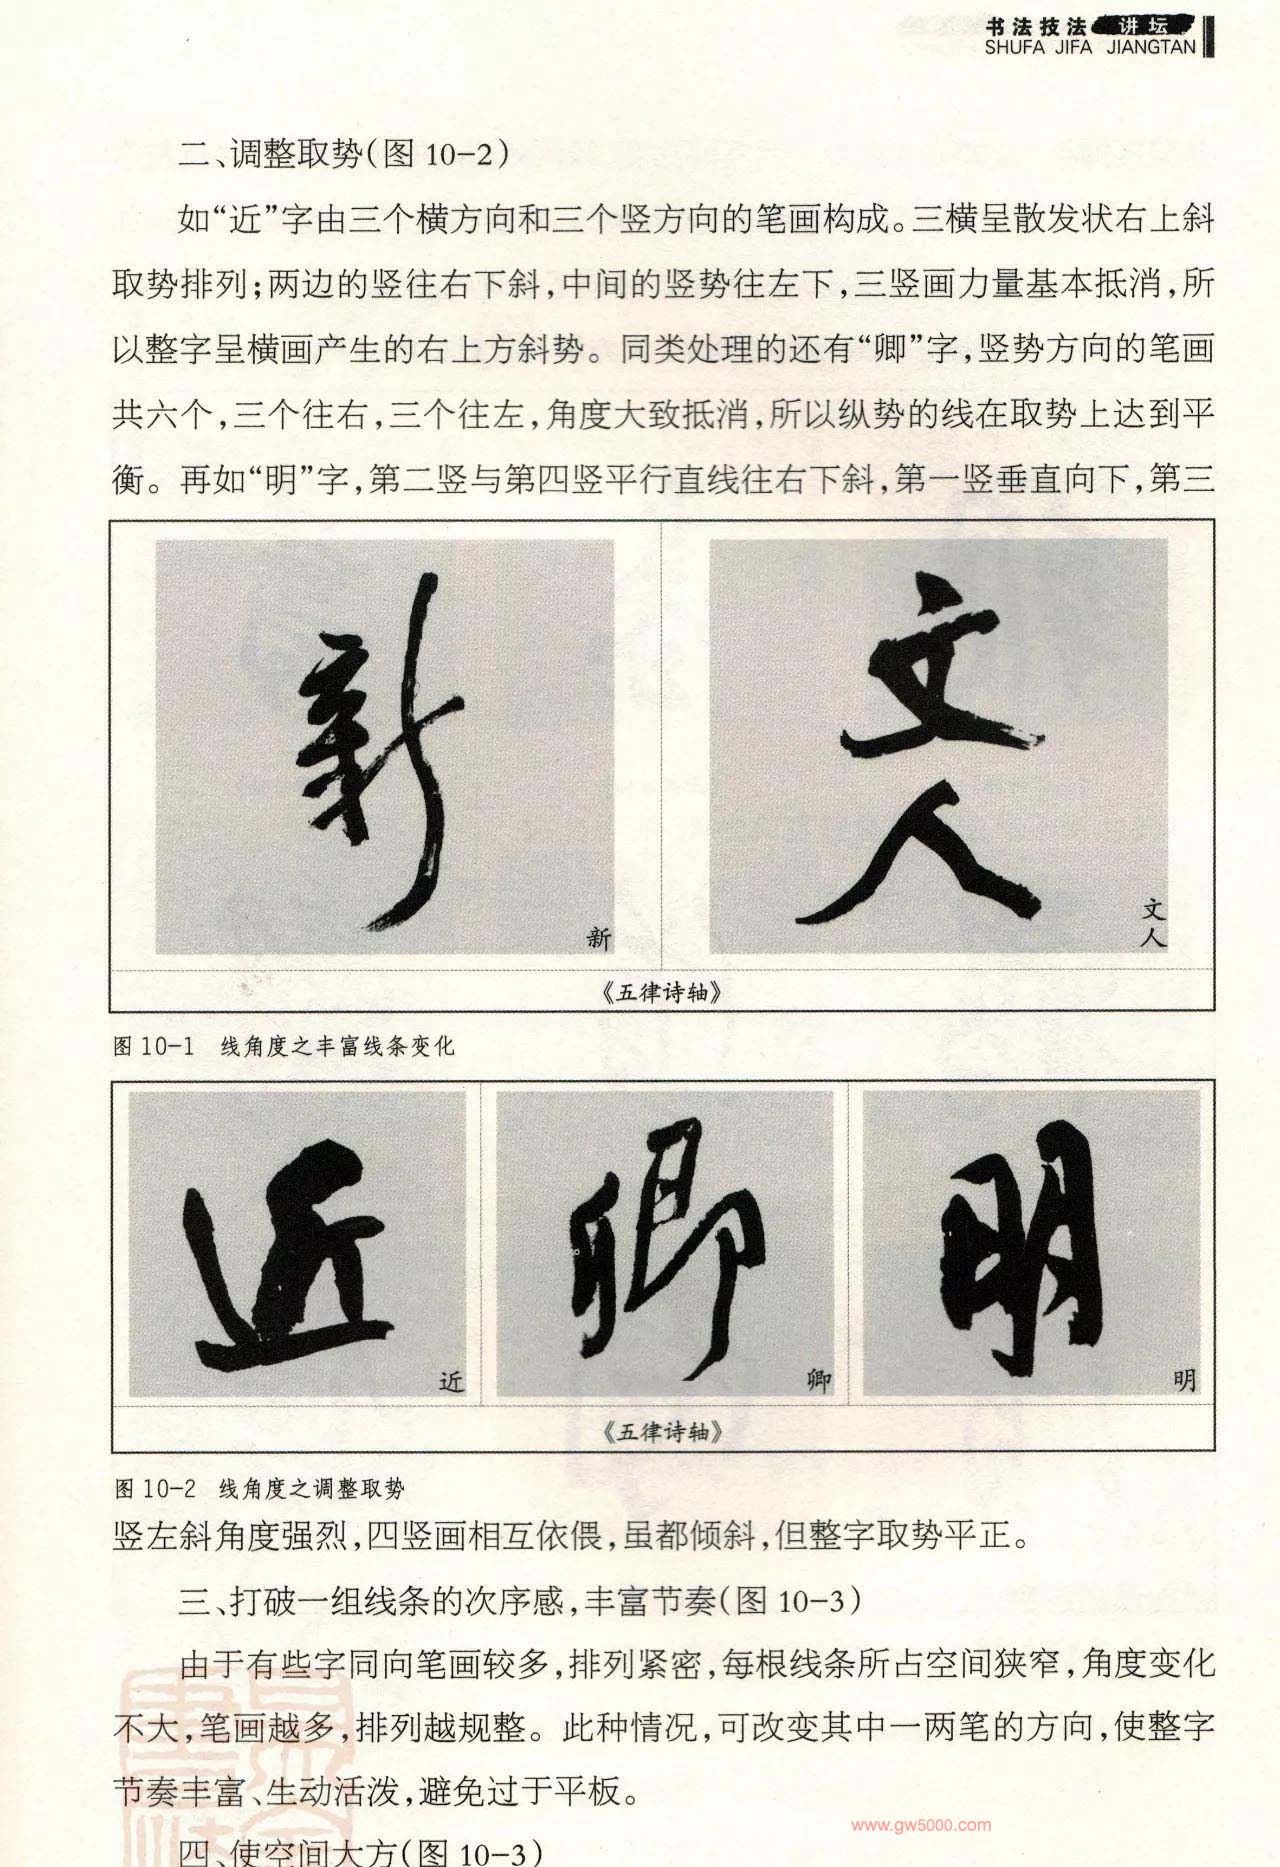 书法技法讲坛
SHUFA JIFA JIANGTAN
二、调整取势(图 10-2)
如“近”字由三个横方向和三个竖方向的笔画构成。三横呈散发状右上斜
取势排列;两边的竖往右下斜,中间的竖势往左下,三竖画力量基本抵消,所
以整字呈横画产生的右上方斜势。同类处理的还有“卿”字,竖势方向的笔画
共六个,三个往右,三个往左,角度大致抵消,所以纵势的线在取势上达到平
衡。再如“明”字,第二竖与第四竖平行直线往右下斜,第一竖垂直向下,第三
新
文
人
新
文
人
《五律诗轴》
图 10-1 线角度之丰富线条变化
近
卿
明
近
卿
明
《五律诗轴》
图 10-2 线角度之调整取势
竖左斜角度强烈,四竖画相互依偎,虽都倾斜,但整字取势平正。
三、打破一组线条的次序感,丰富节奏(图 10-3)
由于有些字同向笔画较多,排列紧密,每根线条所占空间狭窄,角度变化
不大,笔画越多,排列越规整。此种情况,可改变其中一两笔的方向,使整字
节奏丰富、生动活泼,避免过于平板。
www.gw5000.com
四、使空间大方(图 10-3)